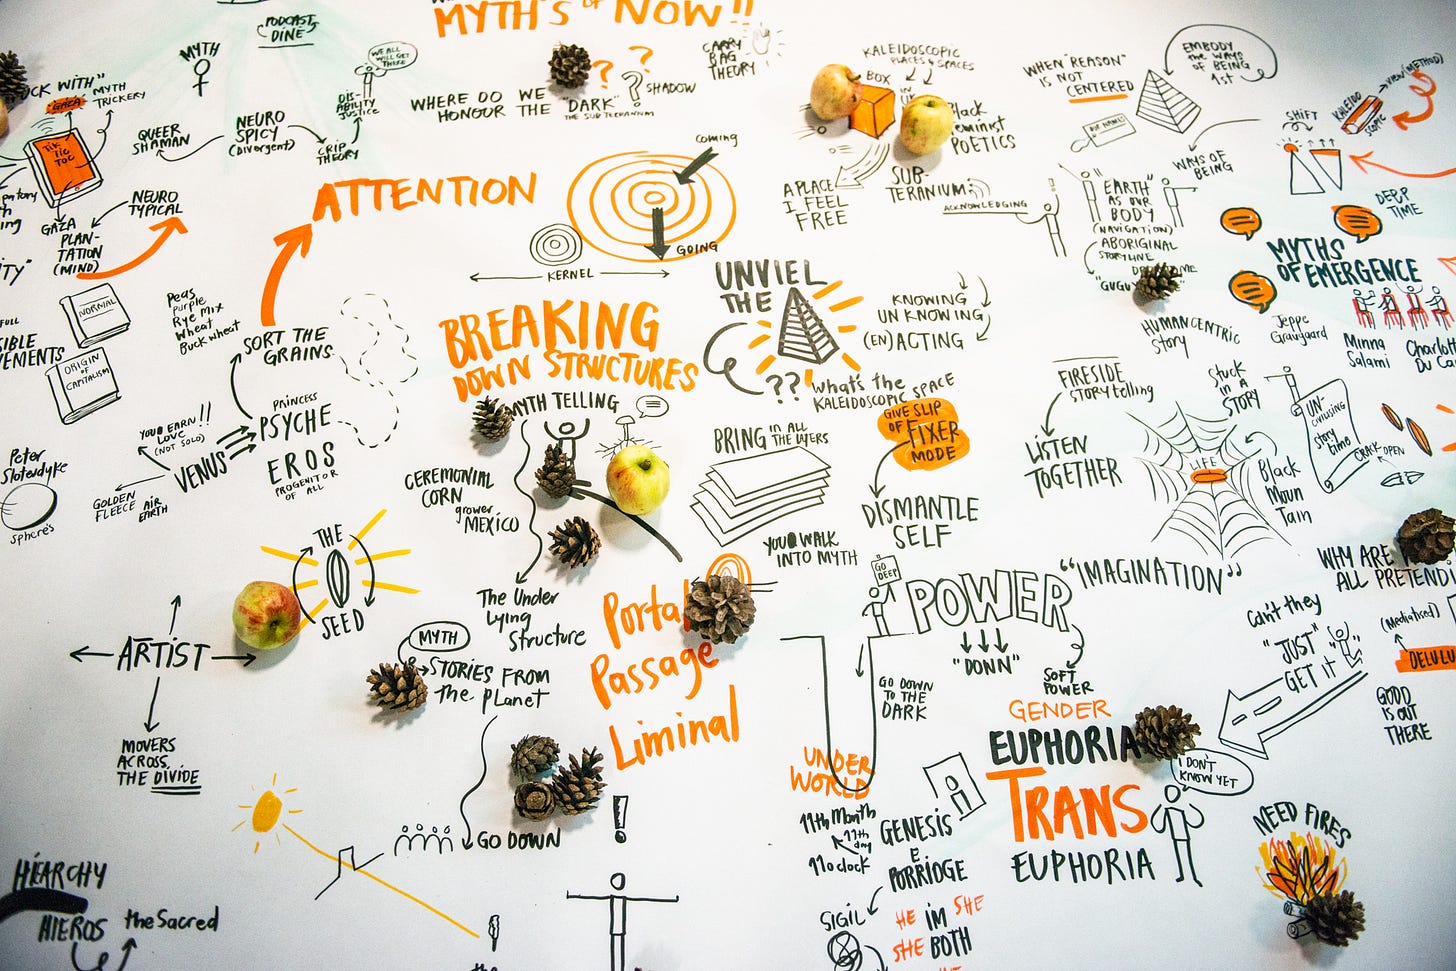 MYTH'S OF NOW!!
PODCAST
DINÉ
MYTH
WE ALL
WILL GET
THERE
DIS-
ABILITY
JUSTICE
UCK WITH"
GAZA
MYTH
TRICKERY
TIK
TIC
TOC
QUEER
SHAMAN
NEURO
SPICY
(DIVERGENT)
CRIP
THEORY
WHERE DO WE
HONOUR THE "DARK"
THE SUBTERRANIUM
? ? ?
SHADOW
CARRY
BAG
THEORY
KALEIDOSCOPIC
PLACES & SPACES
BOX
BLACK
FEMINIST
POETICS
A PLACE
I FEEL
FREE
SUB-
TERANIUM
ACKNOWLEDGING
WHEN "REASON"
IS NOT
CENTERED
EMBODY
THE WAYS
OF BEING
1st
WAYS OF
BEING
"EARTH"
AS OUR
BODY
(NAVIGATION)
ABORIGINAL
STORYLINE
SHIFT
KALEIDO
SCOPIC
VIEW (METHOD)
DEEP
TIME
MYTHS
OF EMERGENCE
Jeppe
Graugaard
Minna
Salami
Charlott
Du Ca
NEURO
TYPICAL
GAZA
PLAN-
TATION
(MIND)
ATTENTION
coming
GOING
KERNEL
NORMAL
ORIGIN
OF
CAPITALISM
Peas
Purple
Rye mix
Wheat
Buckwheat
SORT THE
GRAINS
BREAKING
DOWN STRUCTURES
UNVIEL
THE
??
WHAT'S THE
KALEIDOSCOPIC SPACE
KNOWING
UN KNOWING
(EN)ACTING
HUMAN CENTRIC
STORY
FIRESIDE
STORYTELLING
LISTEN
TOGETHER
STUCK
IN A
STORY
LIFE
Black
Moun
Tain
UN-
CIVILISING
Story
time
CRACK OPEN
PRINCESS
PSYCHE
EROS
PROGENITOR
OF ALL
YOU EARN!!
LOVE
(NOT SOLO)
VENUS
GOLDEN
FLEECE
AIR
EARTH
Peter
Sloterdyke
Sphere's
MYTH TELLING
CEREMONIAL
CORN
grower
MEXICO
BRING IN ALL
THE LAYERS
GIVE SLIP
OF FIXER
MODE
DISMANTLE
SELF
YOU WALK
INTO MYTH
THE
SEED
The Under
Lying
Structure
Portal
Passage
Liminal
GO
DEEP
POWER
"DONN"
SOFT
POWER
"IMAGINATION"
WHY ARE
ALL PRETEND!
Can't they
"JUST"
GET IT"
(Mediatised)
DELULU
GOOD
IS OUT
THERE
ARTIST
MOVERS
ACROSS,
THE DIVIDE
MYTH
STORIES FROM
the PLANET
GO DOWN
GO DOWN
TO THE
DARK
UNDER
WORLD
11th Month
11th
day
11 o clock
GENESIS
P
PORRIDGE
SIGIL
HE IM SHE
SHE BOTH
GENDER
EUPHORIA
TRANS
EUPHORIA
I DON'T
KNOW YET
NEED FIRES
!
HIEARCHY
HIEROS
the Sacred